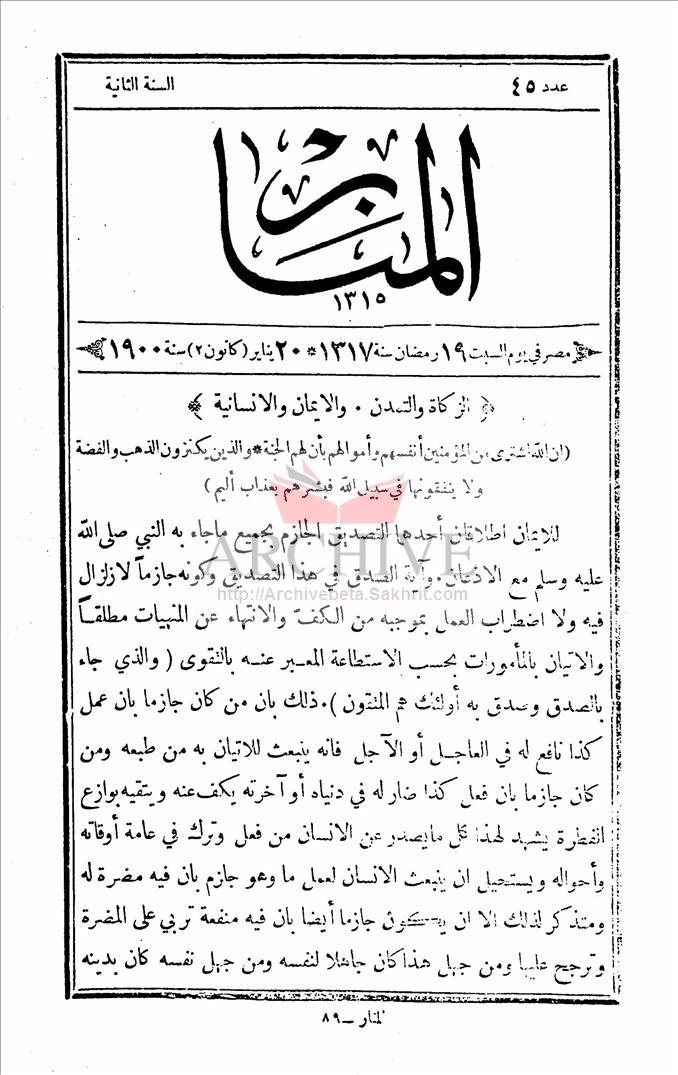 عدد ٤٥
السنة الثانية
المنار
١٣١٥
مصر في يوم السبت ١٩ رمضان سنة ١٣١٧ * ٢٠ يناير (كانون ٢) سنة ١٩٠٠
﴿ الزكاة والتمدن . والايمان والانسانية ﴾
(ان الله اشترى من المؤمنين أنفسهم وأموالهم بأن لهم الجنة * والذين يكنزون الذهب والفضة
ولا ينفقونها في سبيل الله فبشرهم بعذاب أليم )
للايمان اطلاقان أحدها التصديق الجازم بجميع ماجاء به النبي صلى الله
ARCHIVE
عليه وسلم مع الاذعان . وآية الصدق في هذا التصديق وكونه جازماً لازلزال
http://Archivebeta.Sakhrit.com
فيه ولا اضطراب العمل بموجبه من الكفّ والانتهاء عن المنهيات مطلقاً
والاتيان بالمأمورات بحسب الاستطاعة المعبر عنه بالتقوى ( والذي جاء
بالصدق وصدق به أولئك هم المتقون ) . ذلك بان من كان جازما بان عمل
كذا نافع له في العاجل أو الآجل فانه ينبعث للاتيان به من طبعه ومن
كان جازما بان فعل كذا ضار له في دنياه أو آخرته يكف عنه ويتقيه بوازع
الفطرة يشهد لهذا كل مايصدر عن الانسان من فعل وترك في عامة أوقاته
وأحواله ويستحيل ان ينبعث الانسان لعمل ما وهو جازم بان فيه مضرة له
ومتذكر لذلك الا ان يكون جازما أيضا بان فيه منفعة تربي على المضرة
وترجح عليها ومن جهل هذا كان جاهلا لنفسه ومن جهل نفسه كان بدينه
المنار — ٨٩